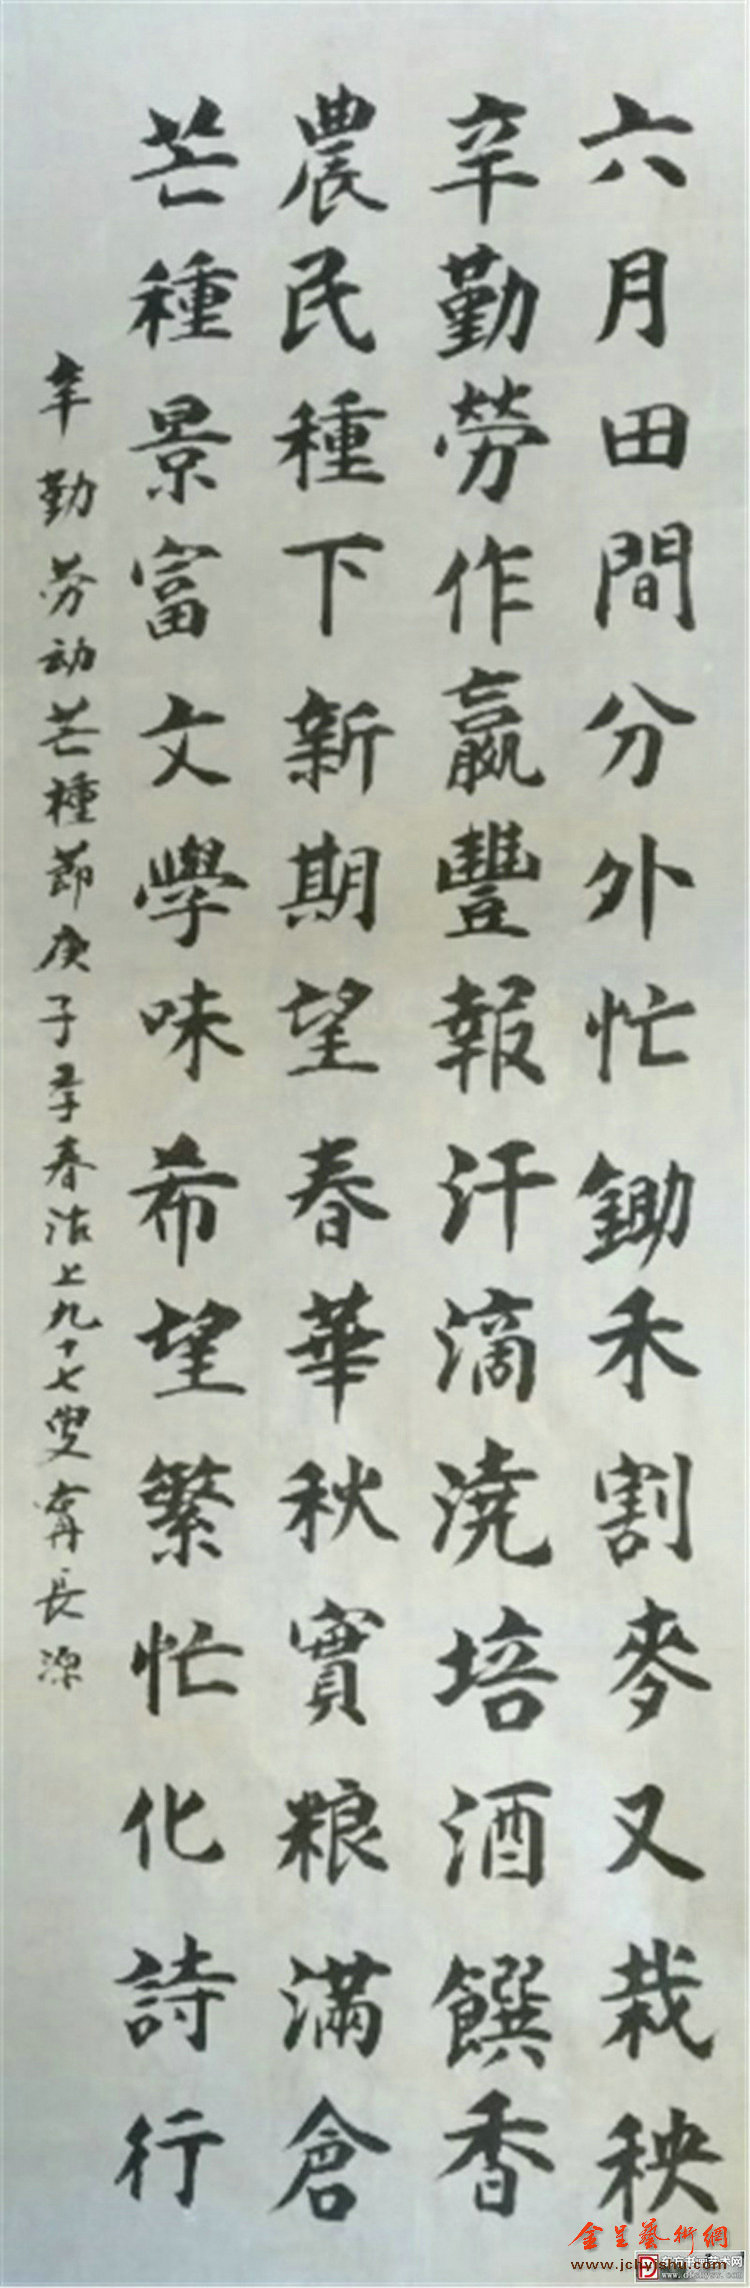 六月田間分外忙鋤禾割麥又栽秧
辛勤勞作贏豐報汗滴澆培酒饌香
農民種下新期望春華秋實粮滿倉
芒種景富文學味希望繁忙化詩行
辛勤劳动芒種節庚子孟春沽上九十七叟甯長源
金呈藝術網
www.jchyishu.com